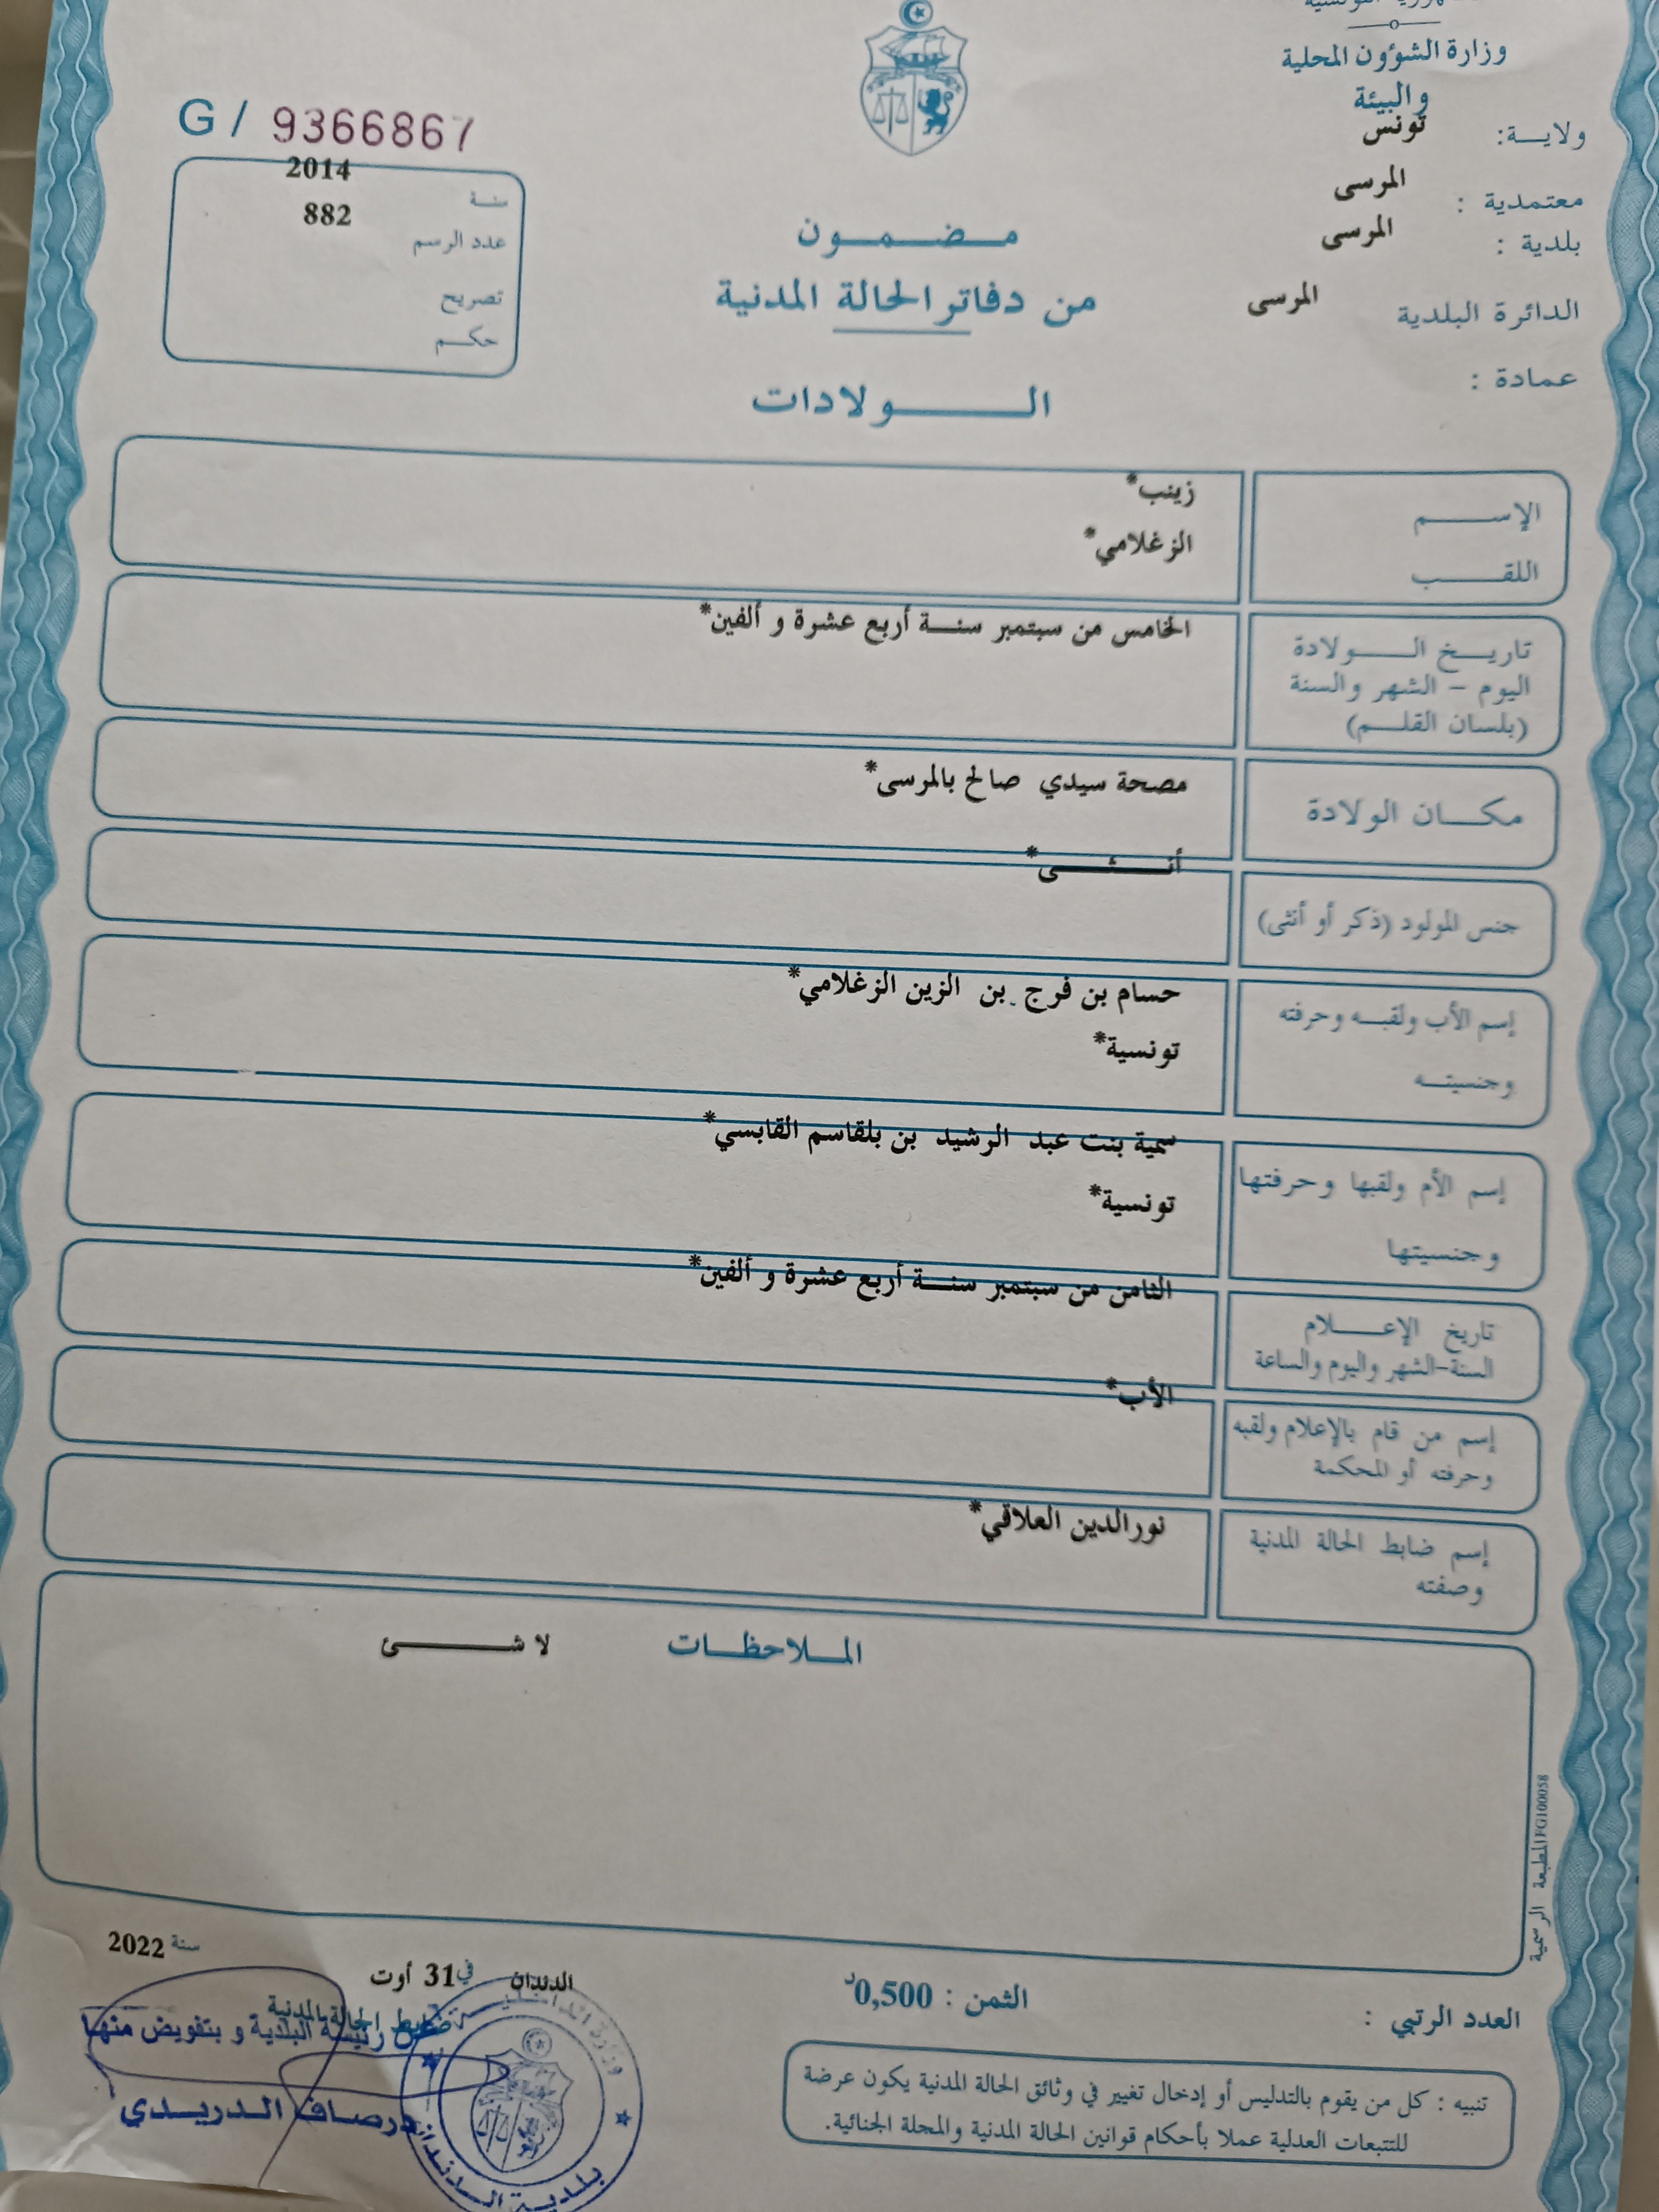 وزارة الشؤون المحلية
والبيئة
ولايـــة: تونس
معتمدية : المرسى
بلدية : المرسى
الدائرة البلدية المرسى
عمادة :
G / 9366867
سنـة 2014
عدد الرسم 882
تصريح
حكـم
مـضـمـون
من دفاتر الحالة المدنية
الـولادات
الإسـم زينب*
اللقـب الزغلامي*
تاريـخ الـولادة
اليوم – الشهر والسنة
(بلسان القلـم)
الخامس من سبتمبر سنـة أربع عشرة و ألفين*
مكـان الولادة
مصحة سيدي صالح بالمرسى*
جنس المولود (ذكر أو أنثى)
أنـثـى*
إسم الأب ولقبـه وحرفته
وجنسيتـه
حسام بن فرج بن الزين الزغلامي*
تونسية*
إسم الأم ولقبها وحرفتها
وجنسيتها
سمية بنت عبد الرشيد بن بلقاسم القابسي*
تونسية*
تاريخ الإعـلام
السنة-الشهر واليوم والساعة
الثامن من سبتمبر سنـة أربع عشرة و ألفين*
إسم من قام بالإعلام ولقبه
وحرفته أو المحكمة
الأب*
إسم ضابط الحالة المدنية
وصفته
نورالدين العلاقي*
المـلاحظـات لا شـئ
المطبعة الرسمية FG100058
العدد الرتبي :
الثمن : 0,500د
الدندان في 31 أوت سنة 2022
ضابط الحالة المدنية
عن رئيسة البلدية و بتفويض منها
درصاف الـدريـدي
بلدية الـدندان
تنبيه : كل من يقوم بالتدليس أو إدخال تغيير في وثائق الحالة المدنية يكون عرضة
للتتبعات العدلية عملا بأحكام قوانين الحالة المدنية والمجلة الجنائية.